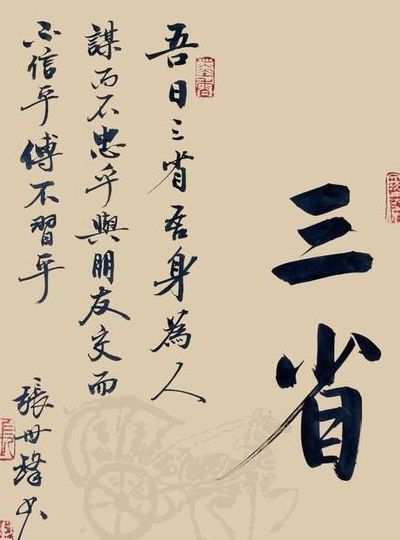 三省
吾日三省吾身為人
謀而不忠乎與朋友交而
不信乎傳不習乎
張世書